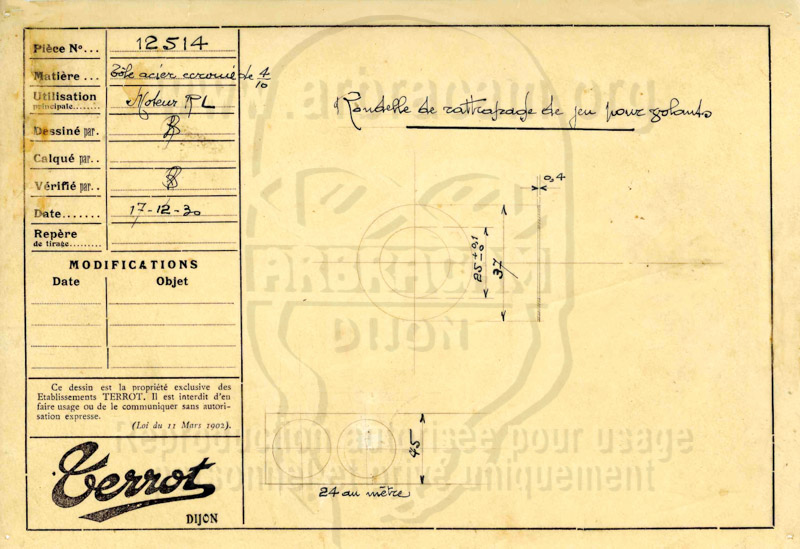 Pièce N°... 12514
Matière... Tôle acier ecroui de 4/10
Utilisation
principale...... Moteur RL
Dessiné par.
Calqué par..
Vérifié par..
Date....... 17-12-30
Repère
de tirage.........
MODIFICATIONS
Date Objet
Ce dessin est la propriété exclusive des
Etablissements TERROT. Il est interdit d'en
faire usage ou de le communiquer sans autori-
sation expresse.
(Loi du 11 Mars 1902).
Terrot
DIJON
Rondelle de rattrapage de jeu pour volants
0,4
25 +0,1 -0
37
45
24 au mètre
www.arbracam.org
ARBRACAM
DIJON
Reproduction autorisée pour usage
personnel et privé uniquement